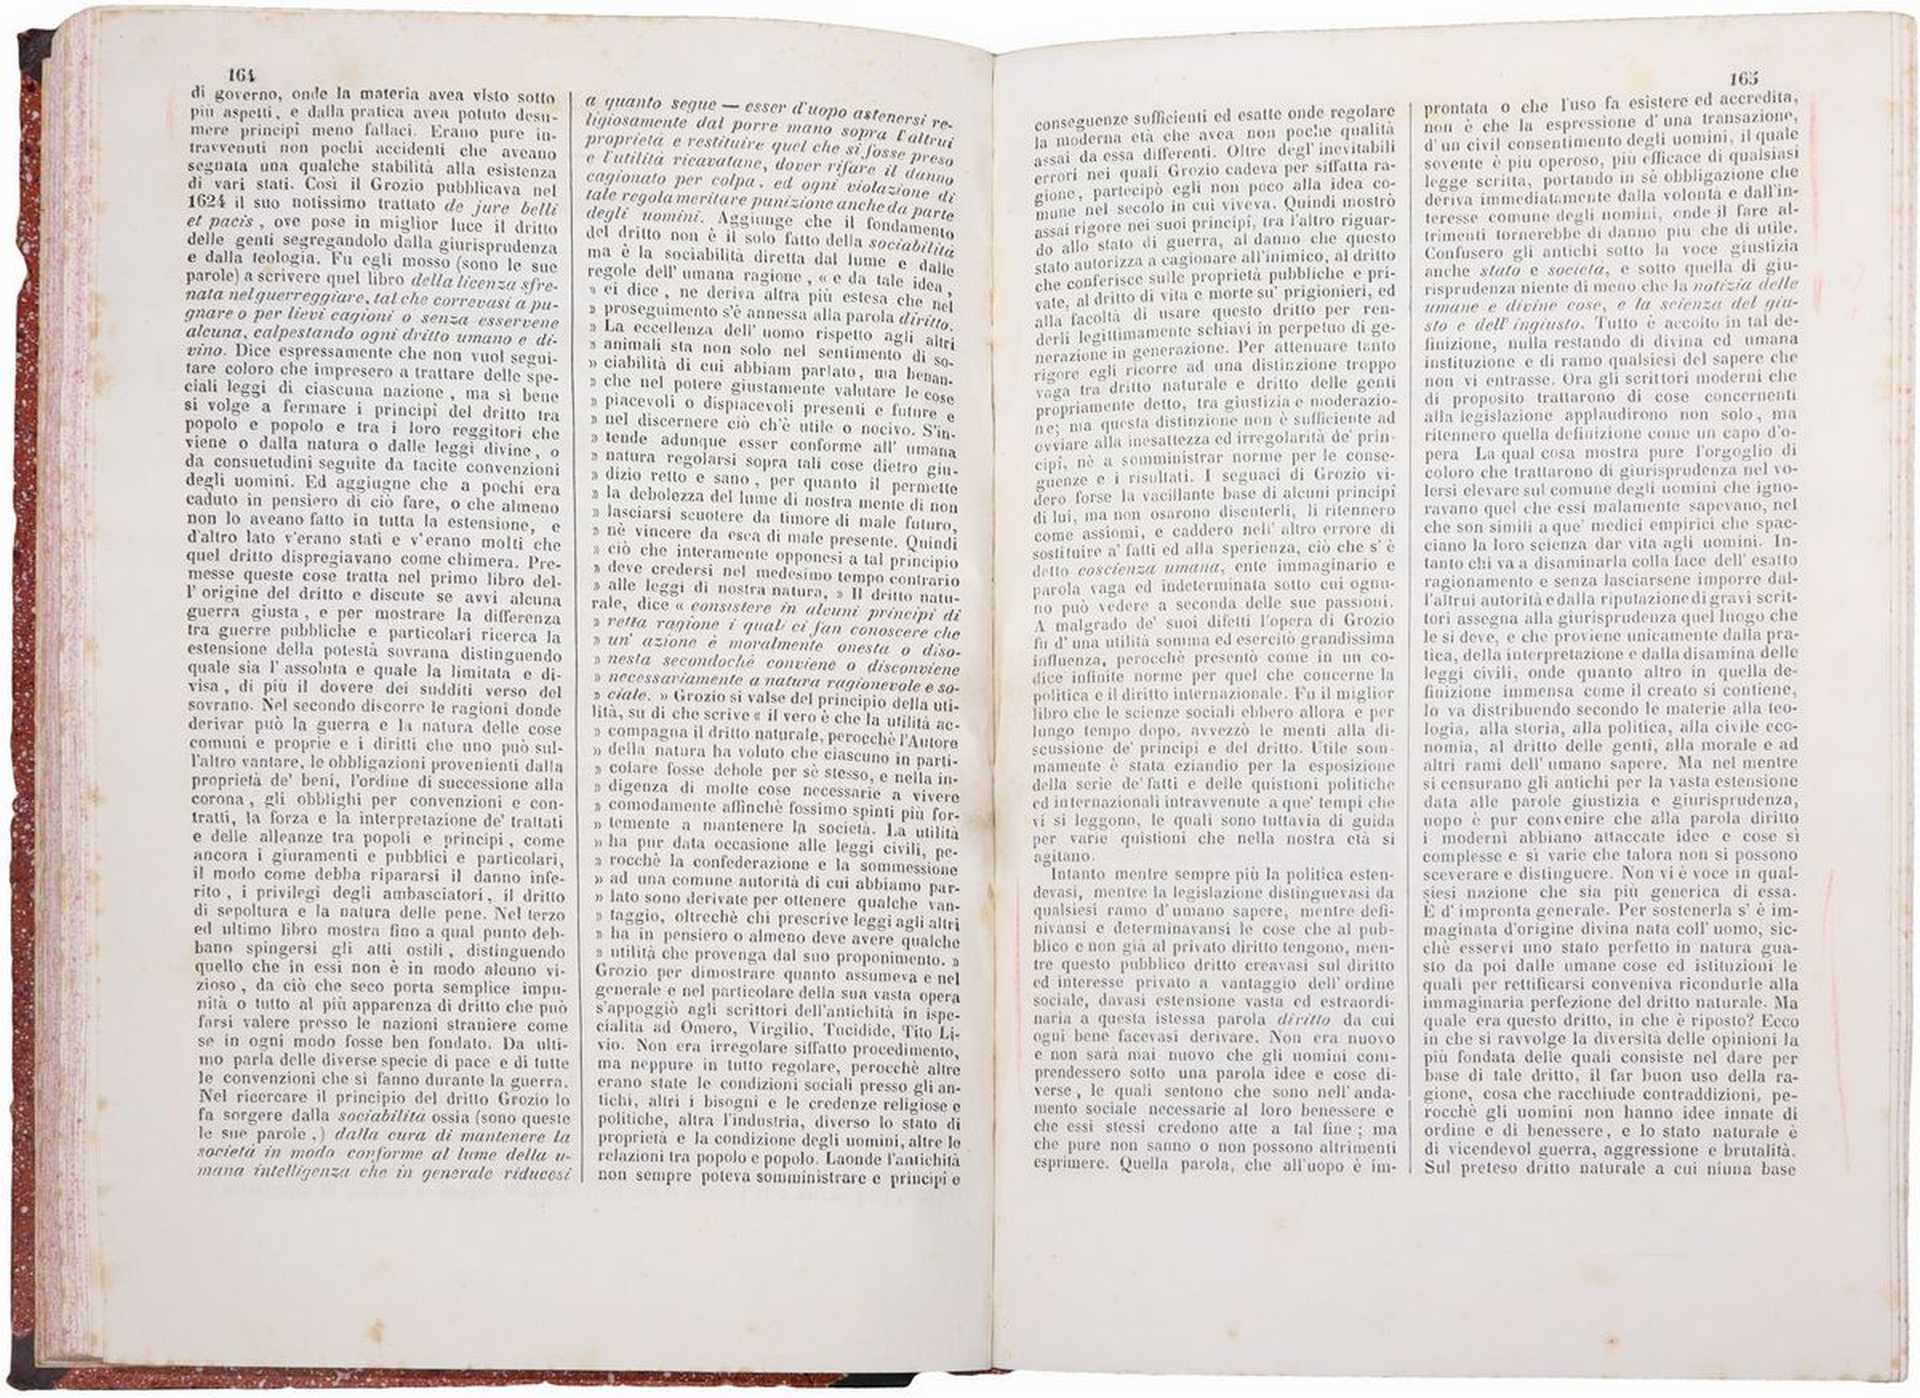 164
di governo, onde la materia avea visto sotto
più aspetti, e dalla pratica avea potuto desu-
mere principî meno fallaci. Erano pure in-
travvenuti non pochi accidenti che aveano
segnata una qualche stabilità alla esistenza
di vari stati. Così il Grozio pubblicava nel
1624 il suo notissimo trattato de jure belli
et pacis, ove pose in miglior luce il dritto
delle genti segregandolo dalla giurisprudenza
e dalla teologia. Fu egli mosso (sono le sue
parole) a scrivere quel libro della licenza sfre-
nata nel guerreggiare, tal che correvasi a pu-
gnare o per lievi cagioni o senza esservene
alcuna, calpestando ogni dritto umano e di-
vino. Dice espressamente che non vuol segui-
tare coloro che impresero a trattare delle spe-
ciali leggi di ciascuna nazione, ma sì bene
si volge a fermare i principî del dritto tra
popolo e popolo e tra i loro reggitori che
viene o dalla natura o dalle leggi divine, o
da consuetudini seguite da tacite convenzioni
degli uomini. Ed aggiugne che a pochi era
caduto in pensiero di ciò fare, o che almeno
non lo aveano fatto in tutta la estensione, e
d'altro lato v'erano stati e v'erano molti che
quel dritto dispregiavano come chimera. Pre-
messe queste cose tratta nel primo libro del-
l' origine del dritto e discute se avvi alcuna
guerra giusta, e per mostrare la differenza
tra guerre pubbliche e particolari ricerca la
estensione della potestà sovrana distinguendo
quale sia l' assoluta e quale la limitata e di-
visa, di più il dovere dei sudditi verso del
sovrano. Nel secondo discorre le ragioni donde
derivar può la guerra e la natura delle cose
comuni e proprie e i diritti che uno può sul-
l'altro vantare, le obbligazioni provenienti dalla
proprietà de' beni, l'ordine di successione alla
corona, gli obblighi per convenzioni e con-
tratti, la forza e la interpretazione de' trattati
e delle alleanze tra popoli e principi, come
ancora i giuramenti e pubblici e particolari,
il modo come debba ripararsi il danno infe-
rito, i privilegi degli ambasciatori, il dritto
di sepoltura e la natura delle pene. Nel terzo
ed ultimo libro mostra fino a qual punto deb-
bano spingersi gli atti ostili, distinguendo
quello che in essi non è in modo alcuno vi-
zioso, da ciò che seco porta semplice impu-
nità o tutto al più apparenza di dritto che può
farsi valere presso le nazioni straniere come
se in ogni modo fosse ben fondato. Da ulti-
mo parla delle diverse specie di pace e di tutte
le convenzioni che si fanno durante la guerra.
Nel ricercare il principio del dritto Grozio lo
fa sorgere dalla sociabilità ossia (sono queste
le sue parole,) dalla cura di mantenere la
società in modo conforme al lume della u-
mana intelligenza che in generale riducesi
a quanto segue — esser d'uopo astenersi re-
ligiosamente dal porre mano sopra l'altrui
proprietà e restituire quel che si fosse preso
e l'utilità ricavatane, dover rifare il danno
cagionato per colpa, ed ogni violazione di
tale regola meritare punizione anche da parte
degli uomini. Aggiunge che il fondamento
del dritto non è il solo fatto della sociabilità
ma è la sociabilità diretta dal lume e dalle
regole dell' umana ragione, « e da tale idea,
» ei dice, ne deriva altra più estesa che nel
» proseguimento s'è annessa alla parola diritto.
» La eccellenza dell' uomo rispetto agli altri
» animali sta non solo nel sentimento di so-
» ciabilità di cui abbiam parlato, ma benan-
» che nel potere giustamente valutare le cose
» piacevoli o dispiacevoli presenti e future e
» nel discernere ciò ch'è utile o nocivo. S'in-
» tende adunque esser conforme all' umana
» natura regolarsi sopra tali cose dietro giu-
» dizio retto e sano, per quanto il permette
» la debolezza del lume di nostra mente di non
» lasciarsi scuotere da timore di male futuro,
» nè vincere da esca di male presente. Quindi
» ciò che interamente opponesi a tal principio
» deve credersi nel medesimo tempo contrario
» alle leggi di nostra natura, » Il dritto natu-
rale, dice « consistere in alcuni principî di
» retta ragione i quali ci fan conoscere che
» un' azione è moralmente onesta o diso-
» nesta secondochè conviene o disconviene
» necessariamente a natura ragionevole e so-
» ciale. » Grozio si valse del principio della uti-
lità, su di che scrive « il vero è che la utilità ac-
» compagna il dritto naturale, perocchè l'Autore
» della natura ha voluto che ciascuno in parti-
» colare fosse debole per sè stesso, e nella in-
» digenza di molte cose necessarie a vivere
» comodamente affinchè fossimo spinti più for-
» temente a mantenere la società. La utilità
» ha pur data occasione alle leggi civili, pe-
» rocchè la confederazione e la sommessione
» ad una comune autorità di cui abbiamo par-
» lato sono derivate per ottenere qualche van-
» taggio, oltrechè chi prescrive leggi agli altri
» ha in pensiero o almeno deve avere qualche
» utilità che provenga dal suo proponimento. »
Grozio per dimostrare quanto assumeva e nel
generale e nel particolare della sua vasta opera
s'appoggiò agli scrittori dell'antichità in ispe-
cialità ad Omero, Virgilio, Tucidide, Tito Li-
vio. Non era irregolare siffatto procedimento,
ma neppure in tutto regolare, perocchè altre
erano state le condizioni sociali presso gli an-
tichi, altri i bisogni e le credenze religiose e
politiche, altra l'industria, diverso lo stato di
proprietà e la condizione degli uomini, altre le
relazioni tra popolo e popolo. Laonde l'antichità
non sempre poteva somministrare e principî e
165
conseguenze sufficienti ed esatte onde regolare
la moderna età che avea non poche qualità
assai da essa differenti. Oltre degl' inevitabili
errori nei quali Grozio cadeva per siffatta ra-
gione, partecipò egli non poco alla idea co-
mune nel secolo in cui viveva. Quindi mostrò
assai rigore nei suoi principî, tra l'altro riguar-
do allo stato di guerra, al danno che questo
stato autorizza a cagionare all'inimico, al dritto
che conferisce sulle proprietà pubbliche e pri-
vate, al dritto di vita e morte su' prigionieri, ed
alla facoltà di usare questo dritto per ren-
derli legittimamente schiavi in perpetuo di ge-
nerazione in generazione. Per attenuare tanto
rigore egli ricorre ad una distinzione troppo
vaga tra dritto naturale e dritto delle genti
propriamente detto, tra giustizia e moderazio-
ne; ma questa distinzione non è sufficiente ad
ovviare alla inesattezza ed irregolarità de' prin-
cipî, nè a somministrar norme per le conse-
guenze e i risultati. I seguaci di Grozio vi-
dero forse la vacillante base di alcuni principî
di lui, ma non osarono discuterli, li ritennero
come assiomi, e caddero nell' altro errore di
sostituire a' fatti ed alla sperienza, ciò che s' è
detto coscienza umana, ente immaginario e
parola vaga ed indeterminata sotto cui ognu-
no può vedere a seconda delle sue passioni.
A malgrado de' suoi difetti l'opera di Grozio
fu d' una utilità somma ed esercitò grandissima
influenza, perocchè presentò come in un co-
dice infinite norme per quel che concerne la
politica e il diritto internazionale. Fu il miglior
libro che le scienze sociali ebbero allora e per
lungo tempo dopo, avvezzò le menti alla di-
scussione de' principî e del dritto. Utile som-
mamente è stata eziandio per la esposizione
della serie de' fatti e delle quistioni politiche
ed internazionali intravvenute a que' tempi che
vi si leggono, le quali sono tuttavia di guida
per varie quistioni che nella nostra età si
agitano.
Intanto mentre sempre più la politica esten-
devasi, mentre la legislazione distinguevasi da
qualsiesi ramo d' umano sapere, mentre defi-
nivansi e determinavansi le cose che al pub-
blico e non già al privato diritto tengono, men-
tre questo pubblico dritto creavasi sul diritto
ed interesse privato a vantaggio dell' ordine
sociale, davasi estensione vasta ed estraordi-
naria a questa istessa parola diritto da cui
ogni bene facevasi derivare. Non era nuovo
e non sarà mai nuovo che gli uomini com-
prendessero sotto una parola idee e cose di-
verse, le quali sentono che sono nell' anda-
mento sociale necessarie al loro benessere e
che essi stessi credono atte a tal fine; ma
che pure non sanno o non possono altrimenti
esprimere. Quella parola, che all'uopo è im-
prontata o che l'uso fa esistere ed accredita,
non è che la espressione d' una transazione,
d' un civil consentimento degli uomini, il quale
sovente è più operoso, più efficace di qualsiasi
legge scritta, portando in sè obbligazione che
deriva immediatamente dalla volontà e dall'in-
teresse comune degli uomini, onde il fare al-
trimenti tornerebbe di danno più che di utile.
Confusero gli antichi sotto la voce giustizia
anche stato e società, e sotto quella di giu-
risprudenza niente di meno che la notizia delle
umane e divine cose, e la scienza del giu-
sto e dell' ingiusto. Tutto è accolto in tal de-
finizione, nulla restando di divina ed umana
instituzione e di ramo qualsiesi del sapere che
non vi entrasse. Ora gli scrittori moderni che
di proposito trattarono di cose concernenti
alla legislazione applaudirono non solo, ma
ritennero quella definizione come un capo d'o-
pera La qual cosa mostra pure l'orgoglio di
coloro che trattarono di giurisprudenza nel vo-
lersi elevare sul comune degli uomini che igno-
ravano quel che essi malamente sapevano, nel
che son simili a que' medici empirici che spac-
ciano la loro scienza dar vita agli uomini. In-
tanto chi va a disaminarla colla face dell' esatto
ragionamento e senza lasciarsene imporre dal-
l'altrui autorità e dalla riputazione di gravi scrit-
tori assegna alla giurisprudenza quel luogo che
le si deve, e che proviene unicamente dalla pra-
tica, della interpretazione e dalla disamina delle
leggi civili, onde quanto altro in quella de-
finizione immensa come il creato si contiene,
lo va distribuendo secondo le materie alla teo-
logia, alla storia, alla politica, alla civile eco-
nomia, al dritto delle genti, alla morale e ad
altri rami dell' umano sapere. Ma nel mentre
si censurano gli antichi per la vasta estensione
data alle parole giustizia e giurisprudenza,
uopo è pur convenire che alla parola diritto
i moderni abbiano attaccate idee e cose sì
complesse e sì varie che talora non si possono
sceverare e distinguere. Non vi è voce in qual-
siesi nazione che sia più generica di essa.
È d' impronta generale. Per sostenerla s' è im-
maginata d'origine divina nata coll' uomo, sic-
chè esservi uno stato perfetto in natura gua-
sto da poi dalle umane cose ed istituzioni le
quali per rettificarsi conveniva ricondurle alla
immaginaria perfezione del dritto naturale. Ma
quale era questo dritto, in che è riposto? Ecco
in che si ravvolge la diversità delle opinioni la
più fondata delle quali consiste nel dare per
base di tale dritto, il far buon uso della ra-
gione, cosa che racchiude contraddizioni, pe-
rocchè gli uomini non hanno idee innate di
ordine e di benessere, e lo stato naturale è
di vicendevol guerra, aggressione e brutalità.
Sul preteso dritto naturale a cui niuna base